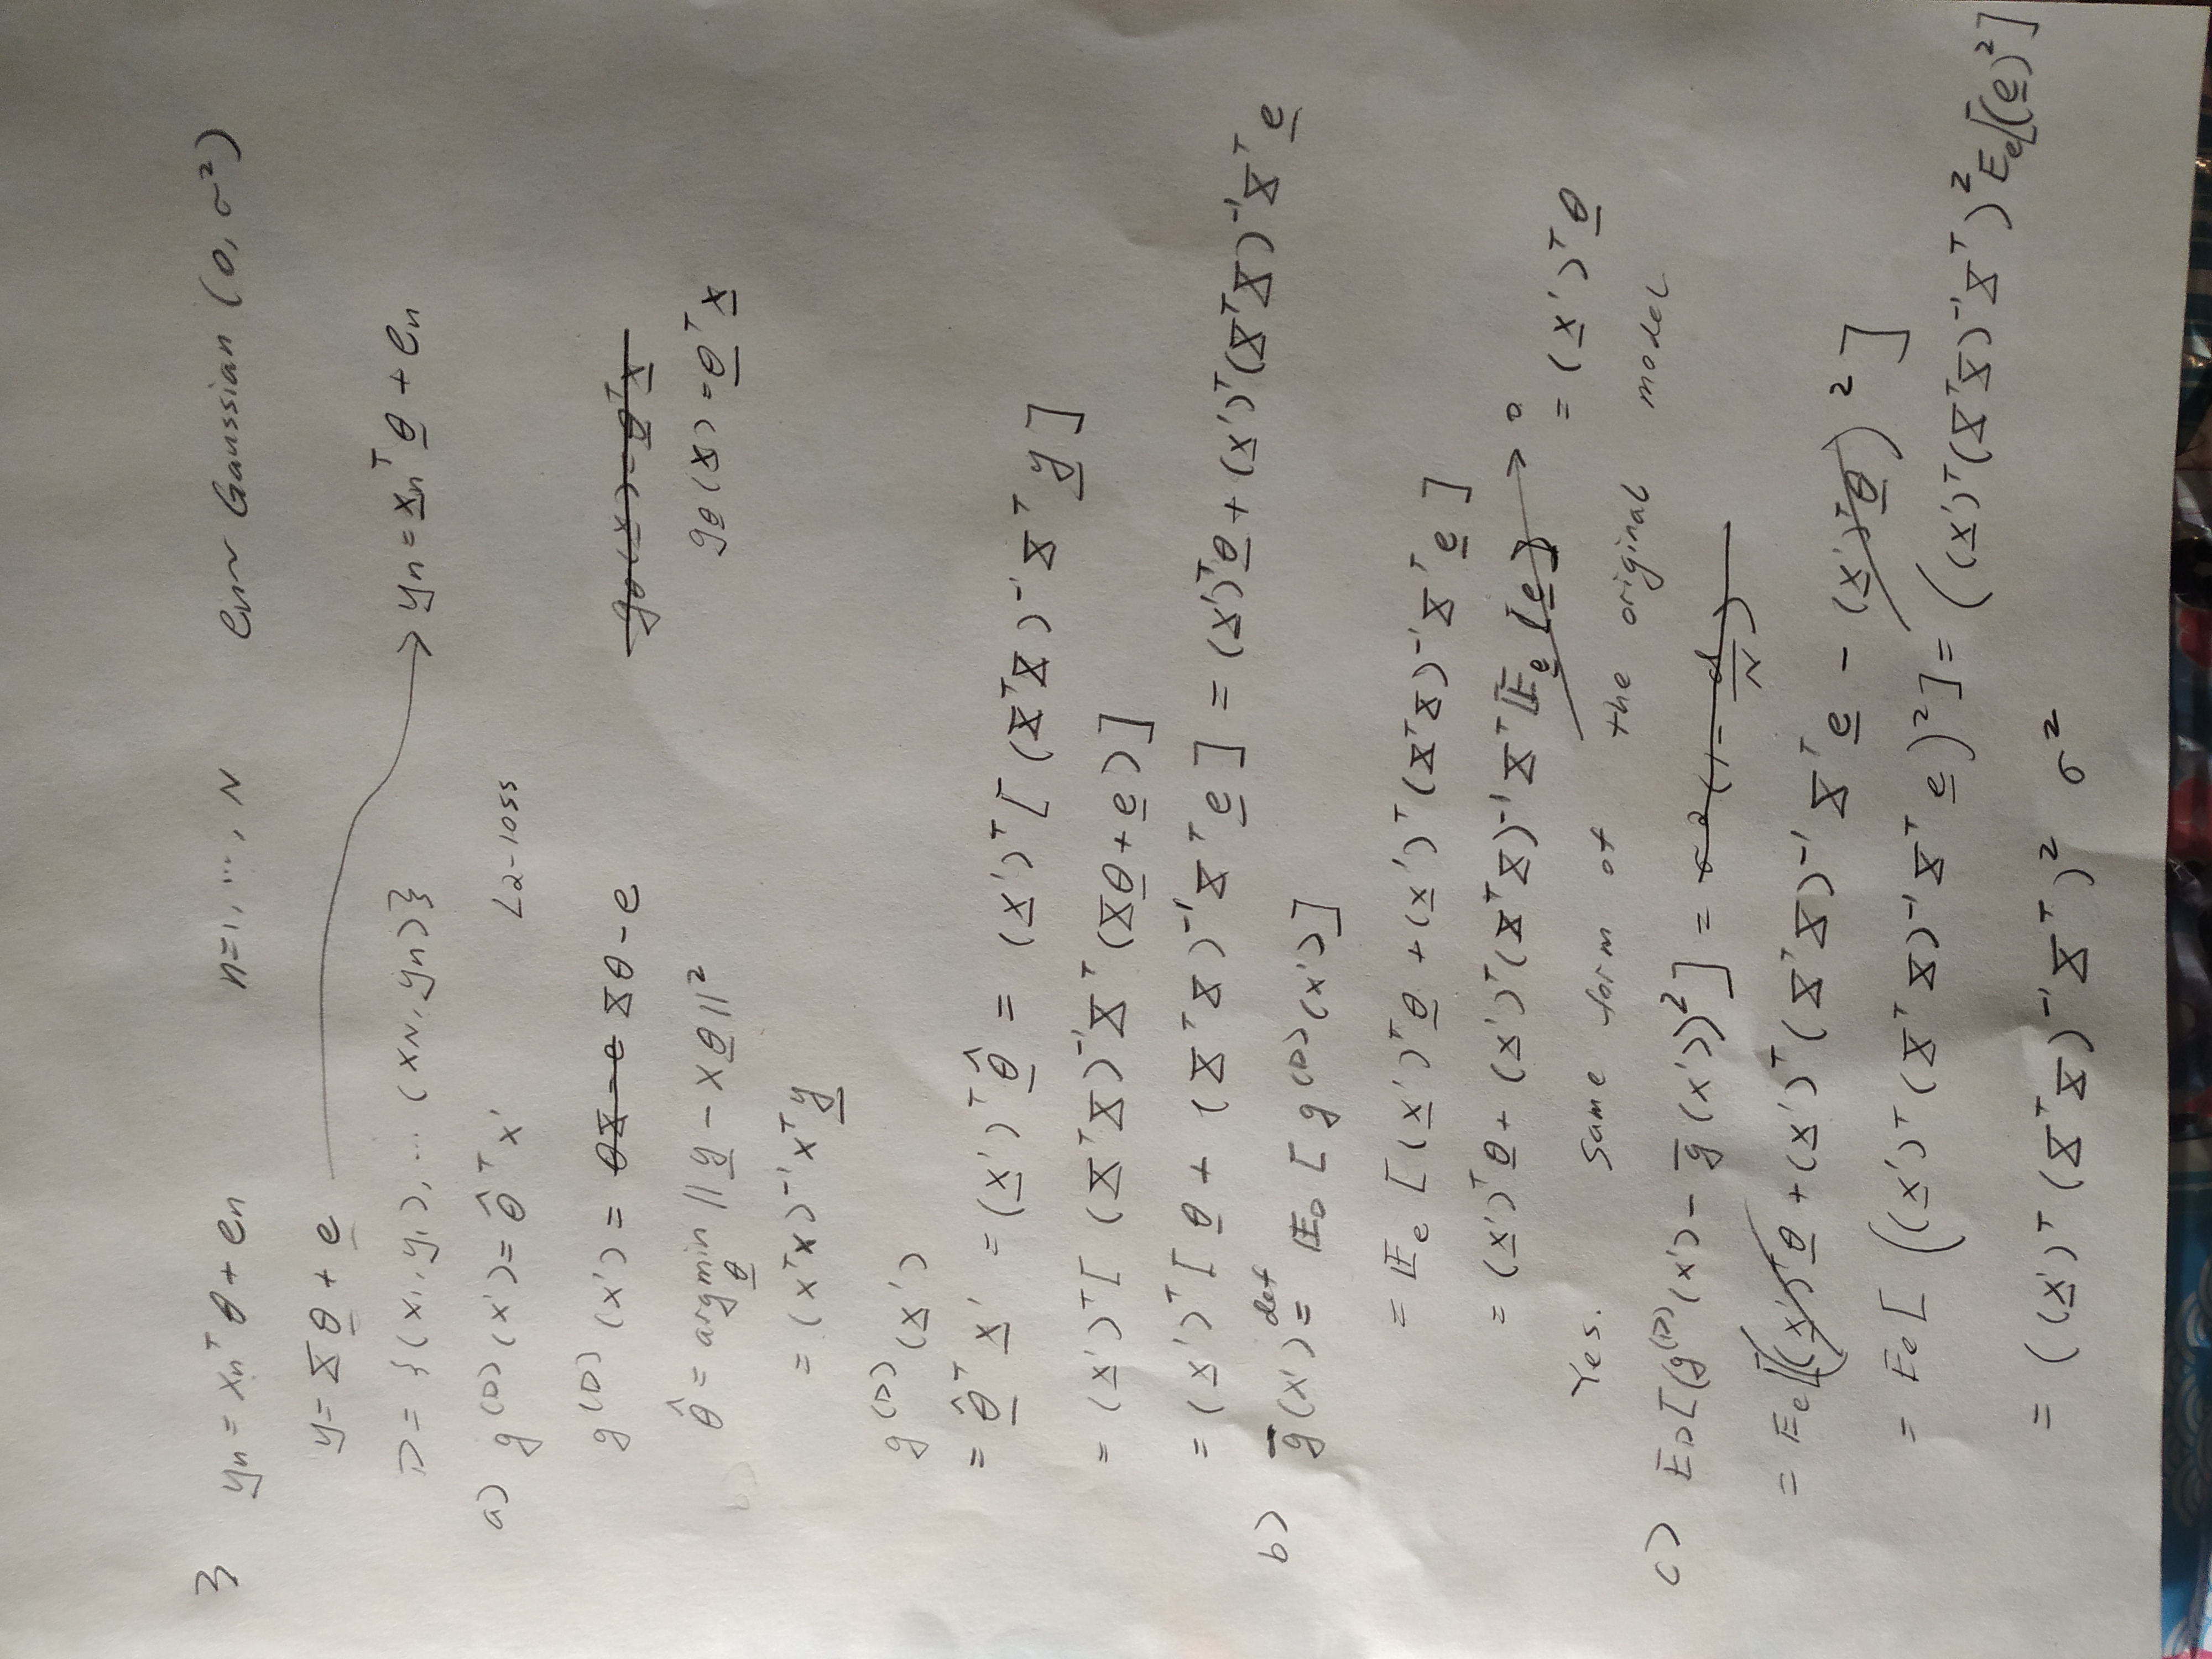 3 yₙ = xₙᵀ θ + eₙ n=1, ..., N eₙ~ Gaussian (0, σ²)
y = X θ + e
D = {(x₁, y₁), ... (x_N, yₙ)} yₙ = xₙᵀ θ + eₙ
a) g⁽ᴰ⁾ (x') = θ̂ᵀ x' L2-loss
g⁽ᴰ⁾ (x') = θX - e Xθ - e g_θ(x) = θᵀx
θ̂ = argmin_θ || y - Xθ ||² g_θ(x) = θᵀ x
= (xᵀx)⁻¹ xᵀ y
g⁽ᴰ⁾ (x')
= θ̂ᵀ x' = (x')ᵀ θ̂ = (x')ᵀ [ (XᵀX)⁻¹ Xᵀ y ]
= (x')ᵀ [ (XᵀX)⁻¹ Xᵀ (Xθ + e) ]
= (x')ᵀ [ θ + (XᵀX)⁻¹ Xᵀ e ] = (x')ᵀθ + (x')ᵀ(XᵀX)⁻¹Xᵀ e
b) ḡ(x') def= 𝔼_D [ g⁽ᴰ⁾(x') ]
= 𝔼_e [ (x')ᵀθ + (x')ᵀ (XᵀX)⁻¹ Xᵀ e ]
= (x')ᵀ θ + (x')ᵀ (XᵀX)⁻¹ Xᵀ 𝔼_e [e] → 0
= (x')ᵀ θ
Yes. Same form of the original model
c) E_D[(g⁽ᴰ⁾(x') - ḡ(x'))²] = σ²(1 - d/N)
= E_e[((x')ᵀθ + (x')ᵀ (XᵀX)⁻¹ Xᵀ e - (x')ᵀθ)²]
= E_e[ ((x')ᵀ (XᵀX)⁻¹ Xᵀ e)² ] = ((x')ᵀ(XᵀX)⁻¹Xᵀ)² E_e[(e)²]
= ((x')ᵀ (XᵀX)⁻¹ Xᵀ)² σ²